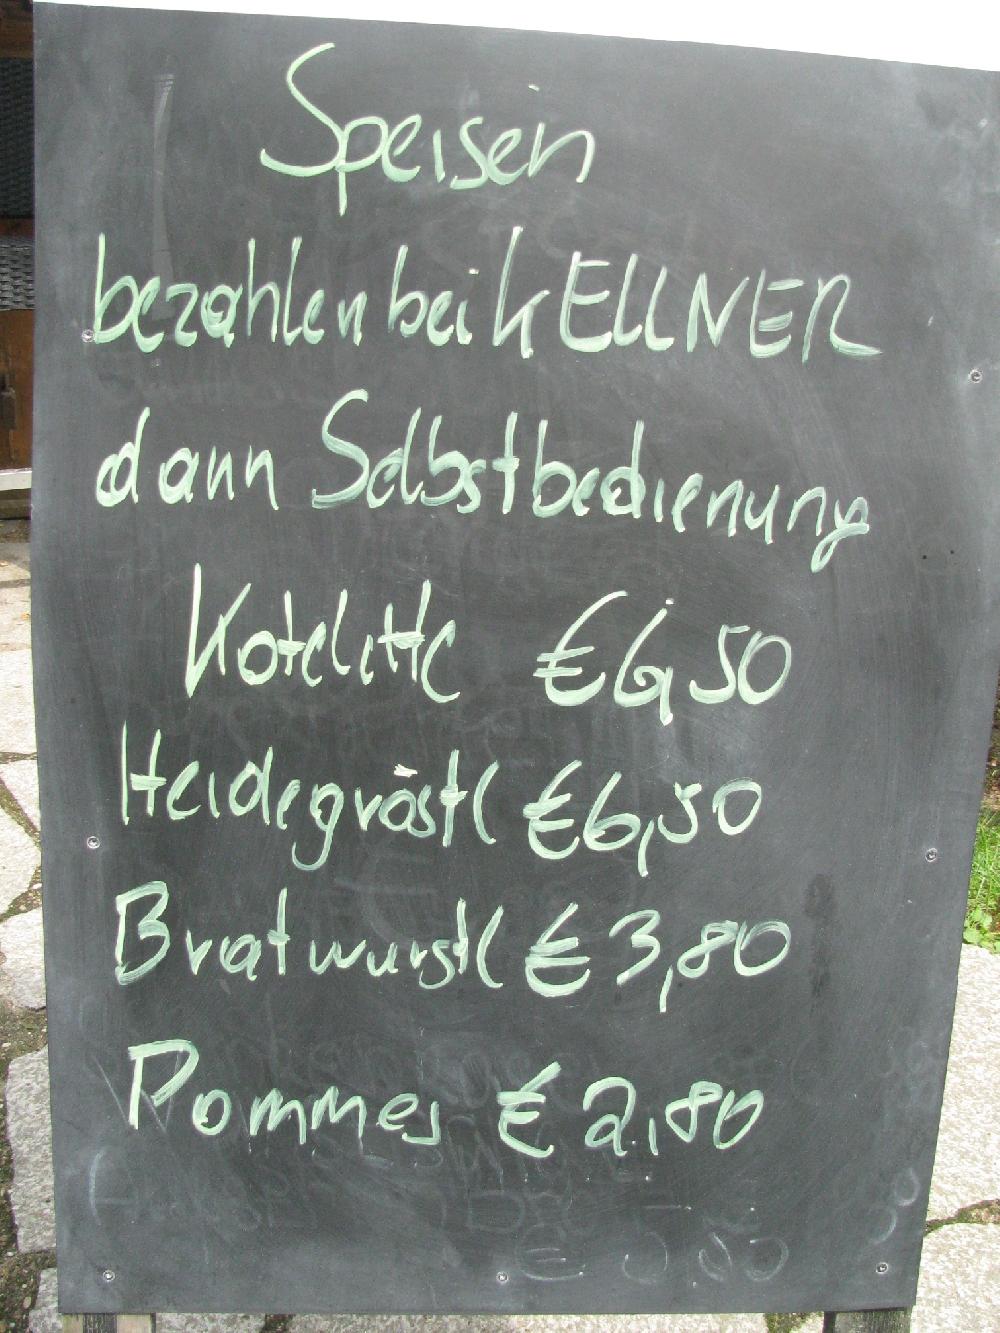 Speisen
bezahlen bei KELLNER
dann Selbstbedienung
Kotelitte €6,50
Heidegröstl €6,50
Bratwurstl €3,80
Pommes €2,80